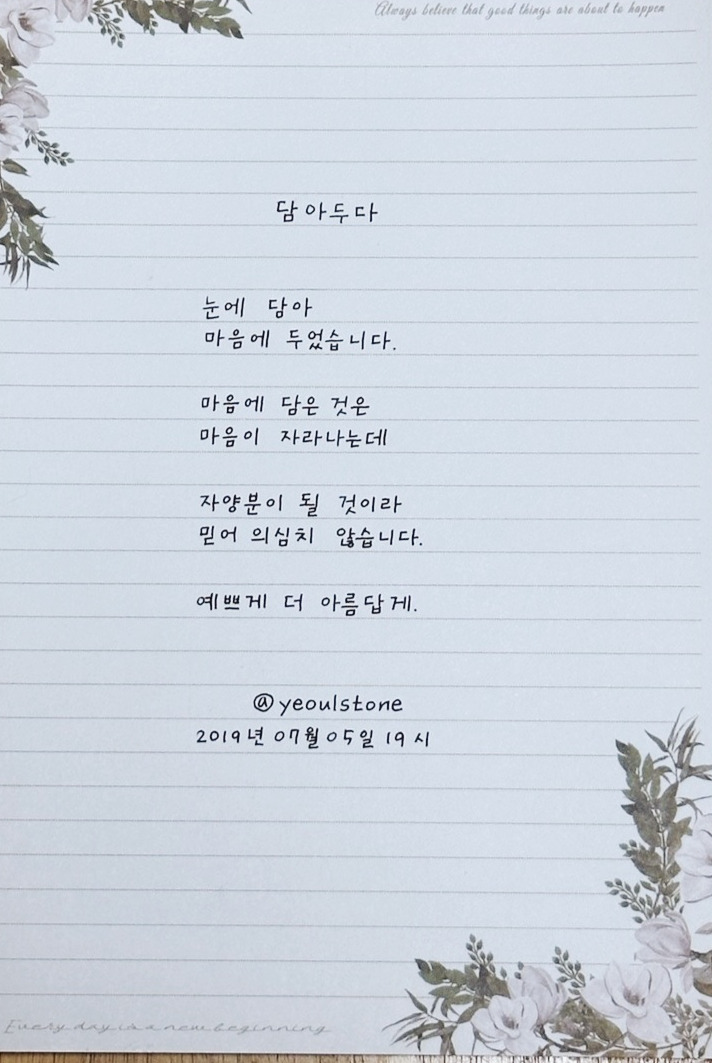 Always believe that good things are about to happen
담아두다
눈에 담아
마음에 두었습니다.
마음에 담은 것은
마음이 자라나는데
자양분이 될 것이라
믿어 의심치 않습니다.
예쁘게 더 아름답게.
@yeoulstone
2019년 07월 05일 19시
Every day is a new beginning